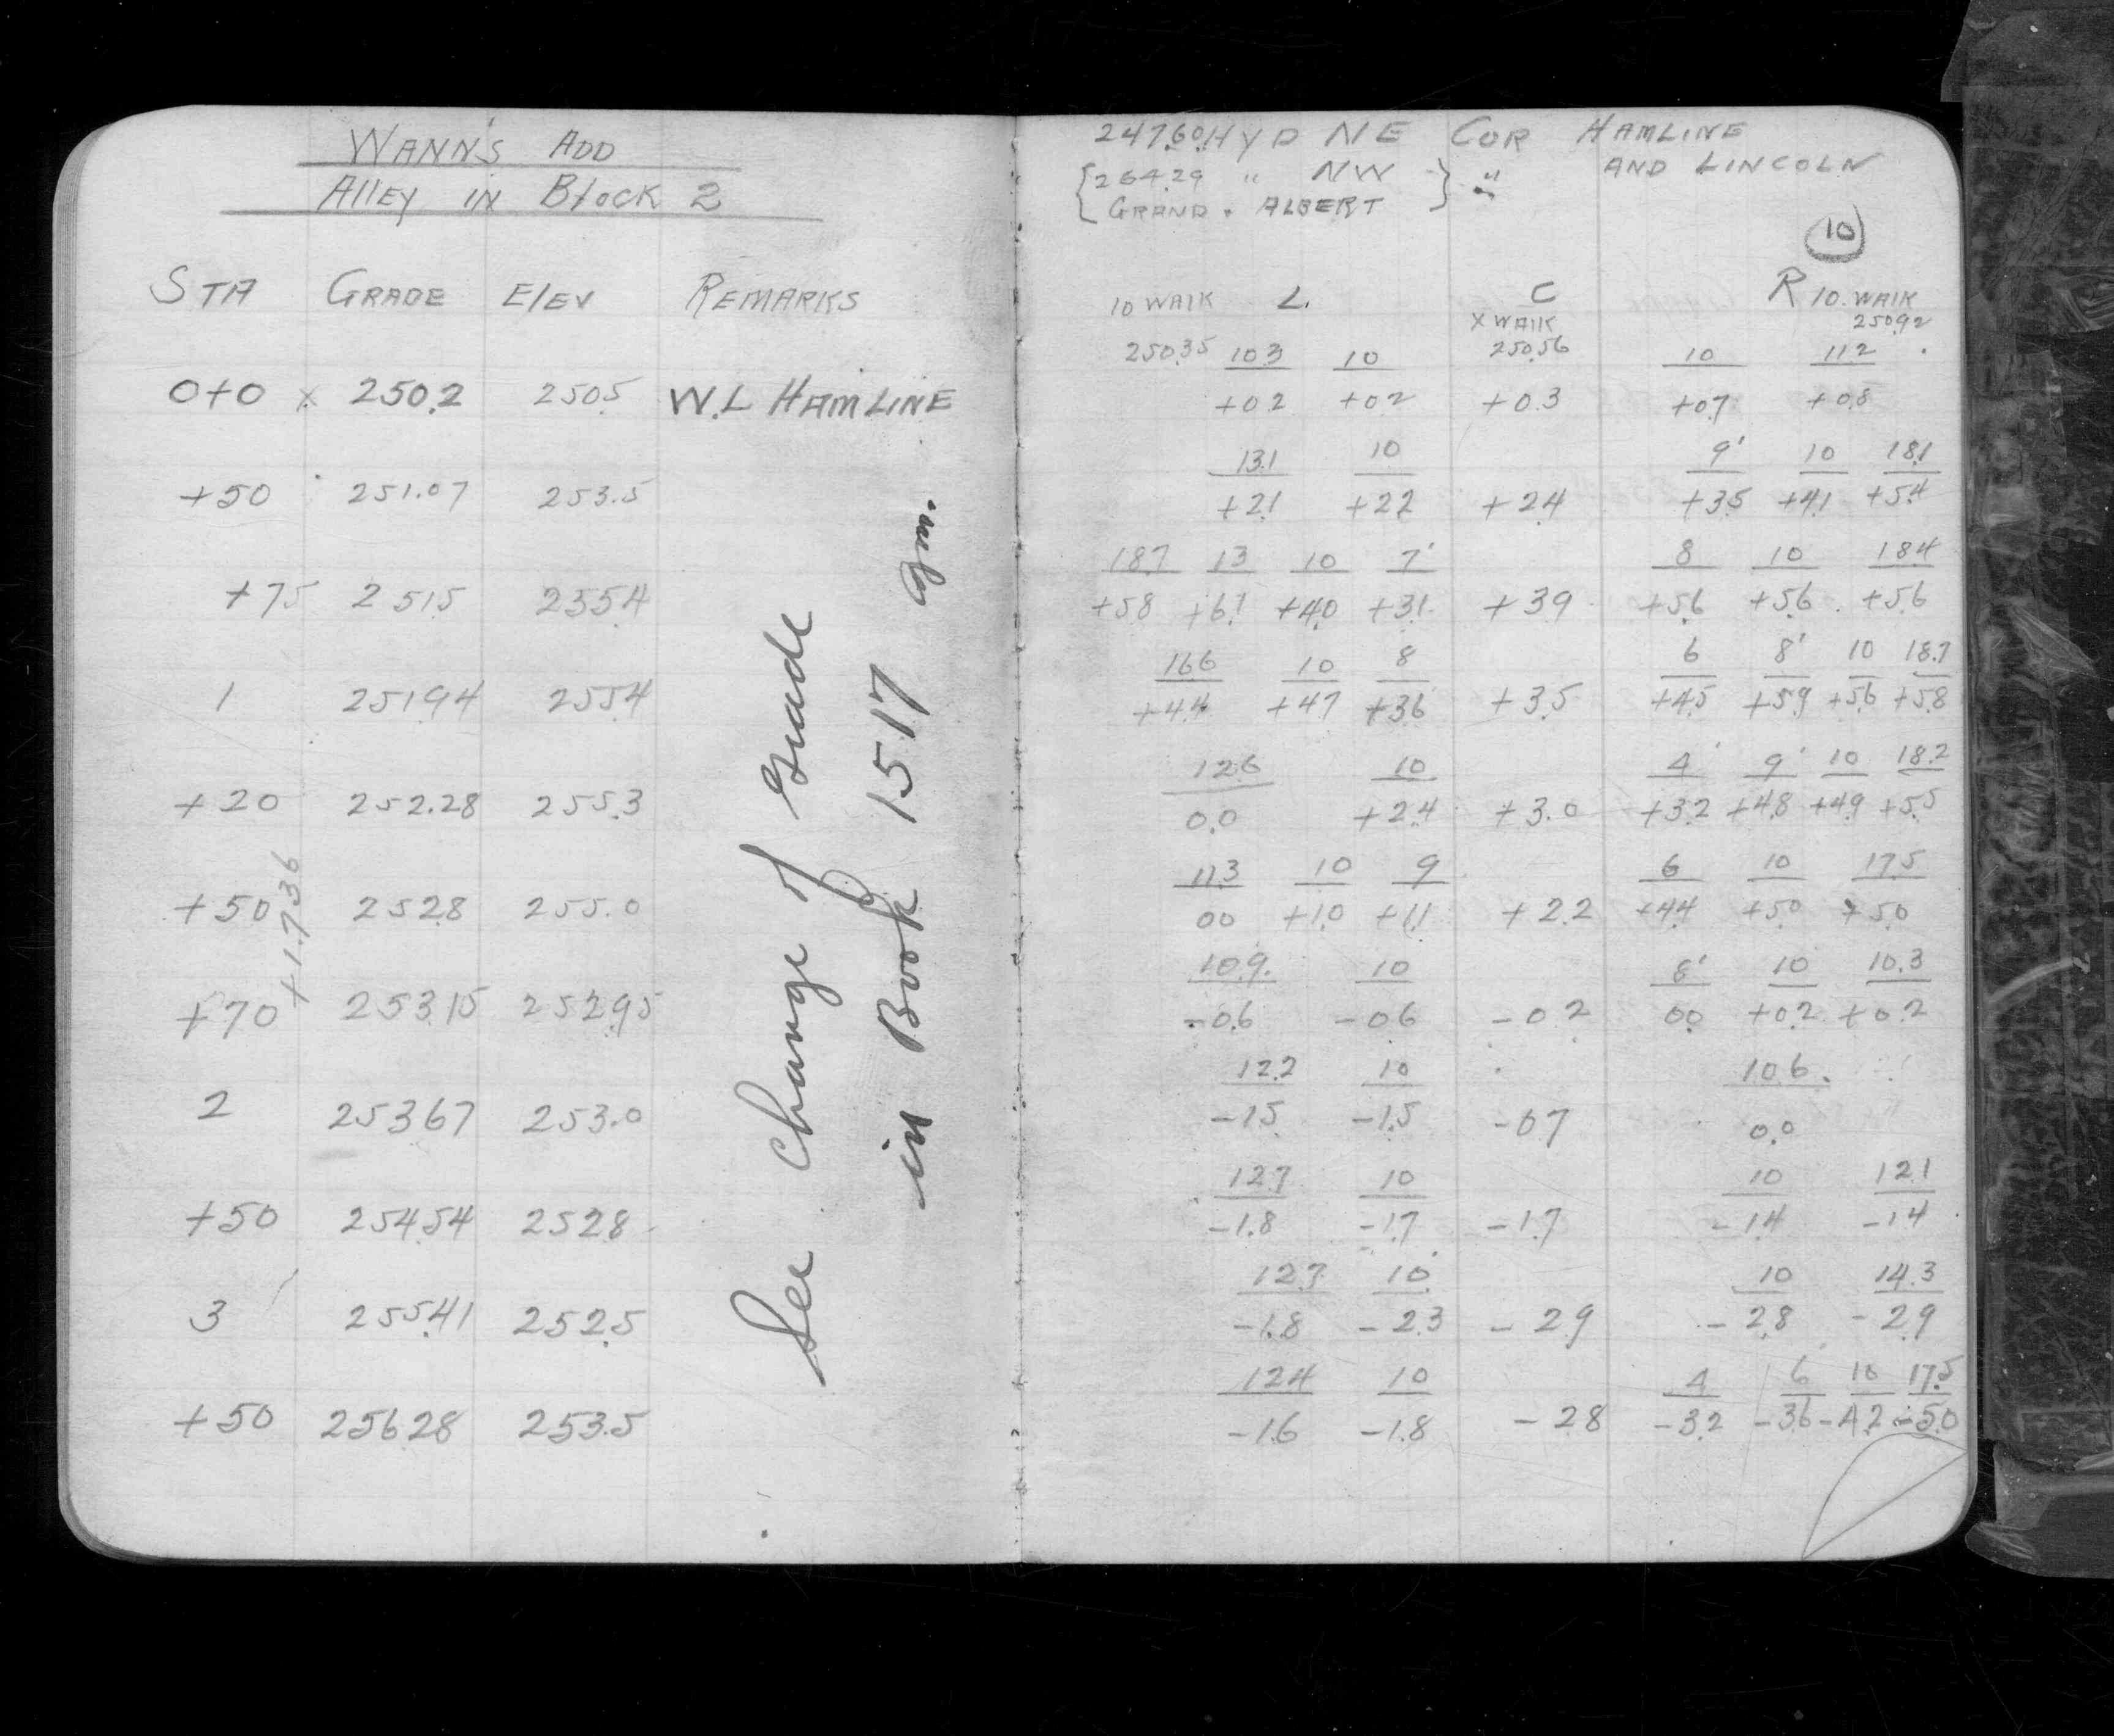 WANN'S ADD
Alley in Block 2
STA GRADE Elev REMARKS
0+0 x 250.2 250.5 W.L HAMLINE
+50 251.07 253.5
+75 251.5 255.4
1 251.94 255.4
+20 252.28 255.3
+50 252.8 255.0
+70 253.15 252.95
2 253.67 253.0
+50 254.54 252.8
3 255.41 252.5
+50 256.28 253.5
+1.736
See Change of Grade
in Book 1517
247.60 HYD NE COR HAMLINE
AND LINCOLN
{264.29 " NW } "
GRAND . ALBERT
10
10 WALK L. C R 10. WALK
X WALK 250.92
250.35 10.3 10 250.56 10 11.2
+0.2 +0.2 +0.3 +0.7 +0.8
13.1 10 9' 10 18.1
+2.1 +2.2 +2.4 +3.5 +4.1 +5.4
18.7 13 10 7' 8 10 18.4
+5.8 +6.1 +4.0 +3.1 +3.9 +5.6 +5.6 +5.6
16.6 10 8 6 8' 10 18.7
+4.4 +4.7 +3.6 +3.5 +4.5 +5.9 +5.6 +5.8
12.6 10 4' 9' 10 18.2
0.0 +2.4 +3.0 +3.2 +4.8 +4.9 +5.5
11.3 10 9 6 10 17.5
0.0 +1.0 +1.1 +2.2 +4.4 +5.0 +5.0
10.9 10 8' 10 10.3
-0.6 -0.6 -0.2 0.0 +0.2 +0.2
12.2 10 10.6
-1.5 -1.5 -0.7 0.0
12.7 10 10 12.1
-1.8 -1.7 -1.7 -1.4 -1.4
12.7 10 10 14.3
-1.8 -2.3 -2.9 -2.8 -2.9
12.4 10 4 6 10 17.5
-1.6 -1.8 -2.8 -3.2 -3.6 -4.2 -5.0